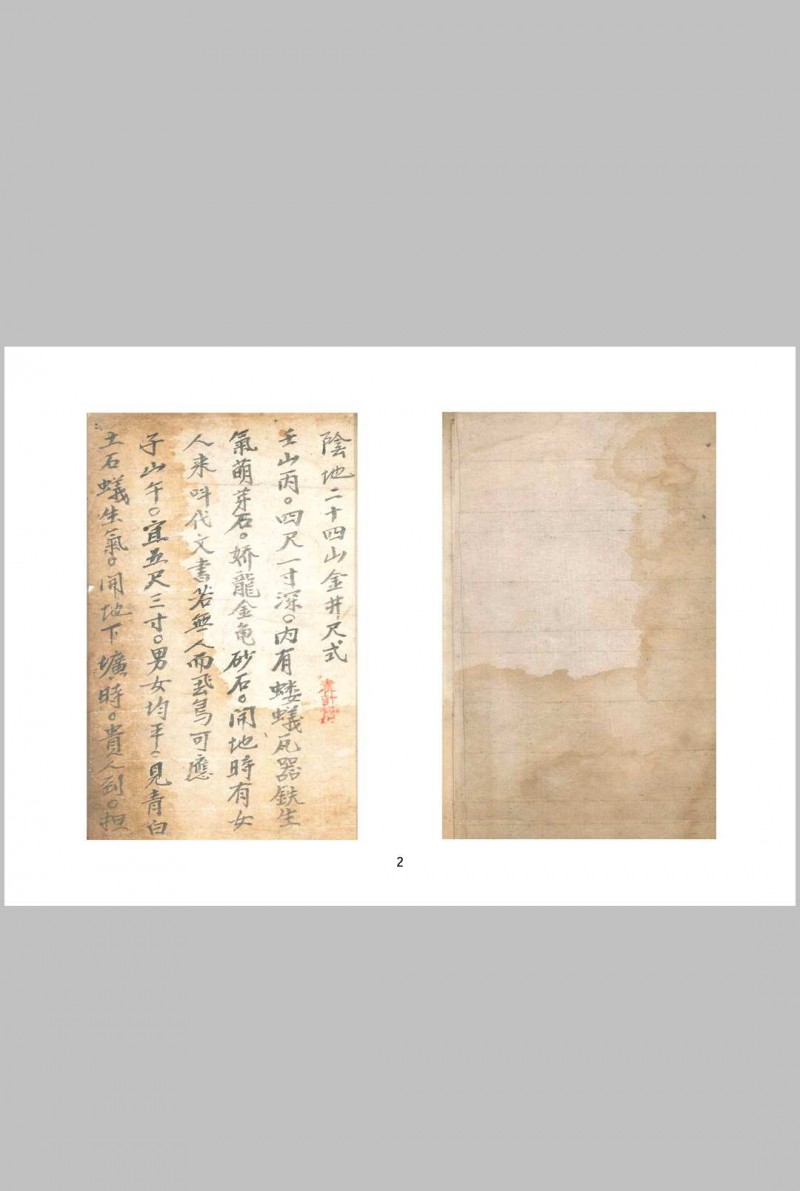 陰地二十四山金井尺式
壬山丙。四尺一寸深。內有螻蟻瓦器鉄生
氣萌芽石。嬌龍金龟砂石。開地時有女
人来呌代文書若無人而飛鳥可應
子山午。宜五尺三寸。男女均平。見青白
土石蟻生氣。開地下壙時。貴人到。担
2